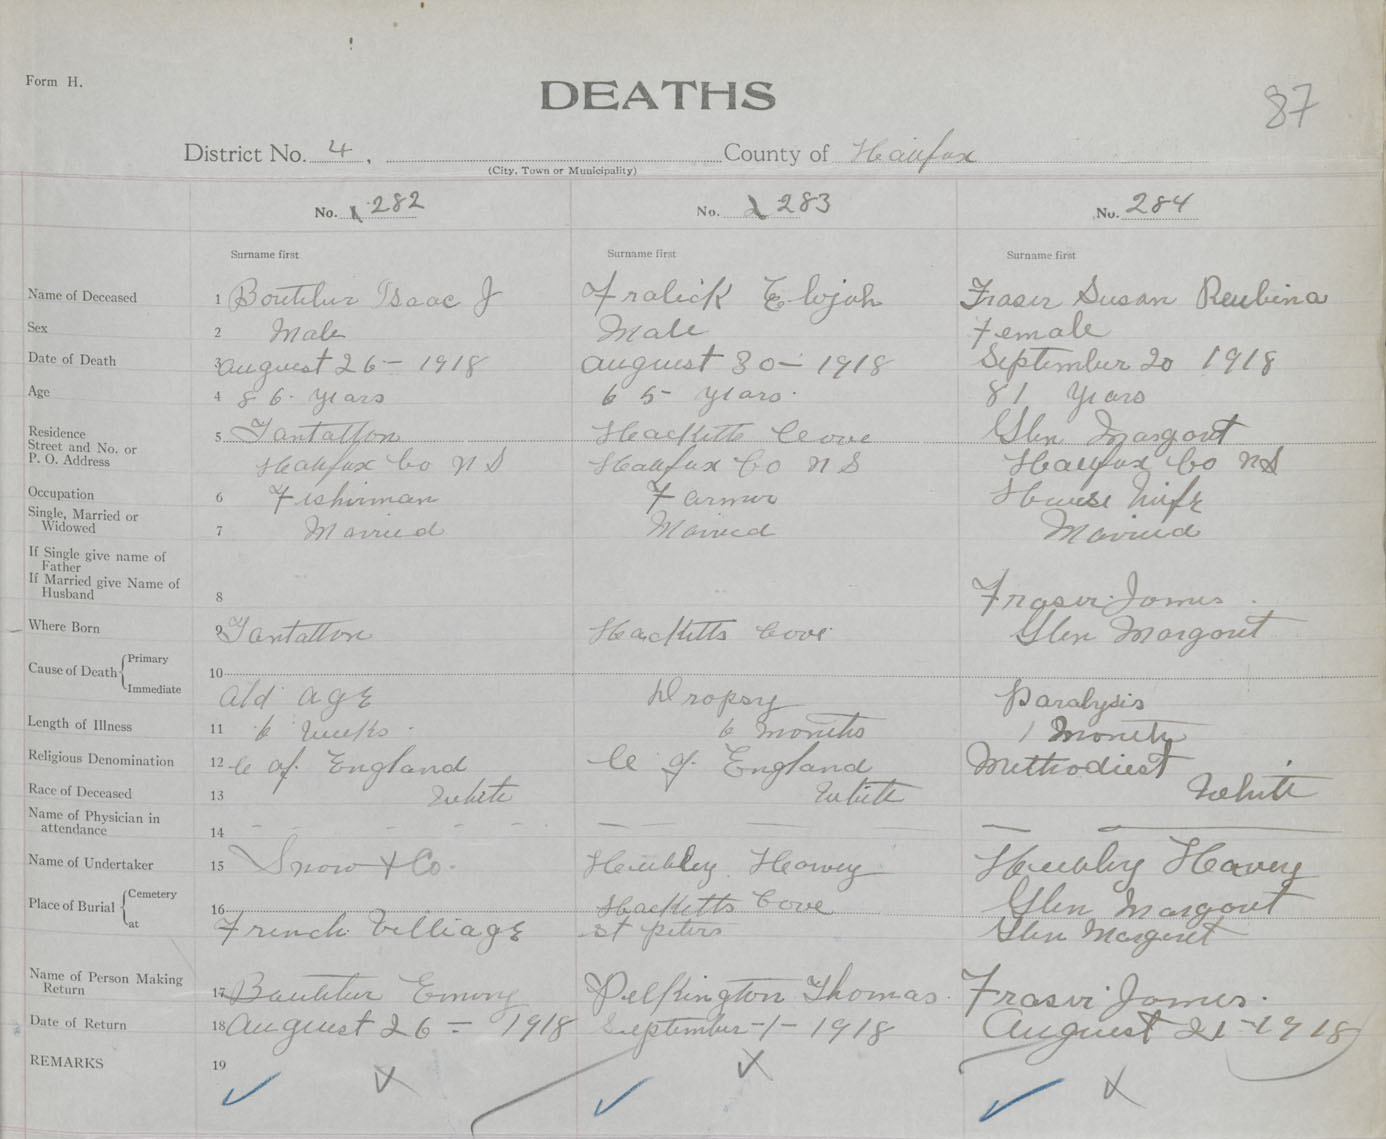 Form H.
DEATHS
87
District No. 4, County of Halifax
(City, Town or Municipality)
No. 282 No. 283 No. 284
Surname first Surname first Surname first
Name of Deceased 1 Boutilur Isaac J Fralick Elijah Fraser Susan Reubina
Sex 2 Male Male Female
Date of Death 3 august 26 - 1918 august 30 - 1918 September 20 1918
Age 4 86 years 65 years. 81 years
Residence
Street and No. or
P. O. Address
5 Tantallon Hacketts Cove Glen Margaret
Halifax Co N S Halifax Co N S Halifax Co N S
Occupation 6 Fisherman Farmer House Wife
Single, Married or
Widowed 7 Married Married Married
If Single give name of
Father
If Married give Name of
Husband 8 Fraser James
Where Born 9 Tantallon Hacketts Cove Glen Margaret
Cause of Death { Primary 10
Immediate Old age Dropsy Paralysis
Length of Illness 11 6 weeks. 6 months 1 Month
Religious Denomination 12 C of England C of England Methodiest
Race of Deceased 13 White White White
Name of Physician in
attendance 14
Name of Undertaker 15 Snow & Co. Hubley Harvey Hubley Harvey
Place of Burial { Cemetery 16 Hacketts Cove Glen Margaret
at French Villiage St Peters Glen Margeret
Name of Person Making
Return 17 Boutilur Emory Pelkington Thomas. Fraser James.
Date of Return 18 august 26 - 1918 September - 1 - 1918 August 21 - 1918
REMARKS 19